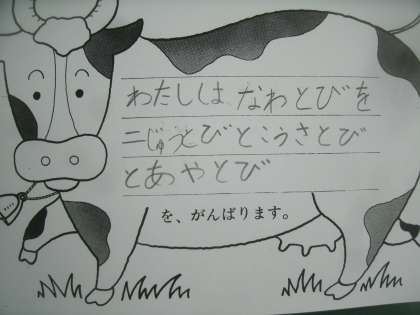 わたしは なわとびを
二じゅうとびとこうさとび
とあやとび
を、がんばります。